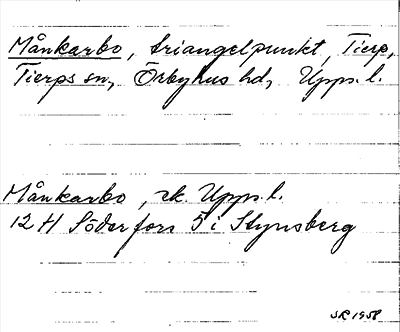 Månkarbo, triangelpunkt, Tierp,
Tierps sn, Örbyhus hd, Upps. l.
Månkarbo, rk. Upps. l.
12 H Söderfors 5 i Stynsberg
SR 1958